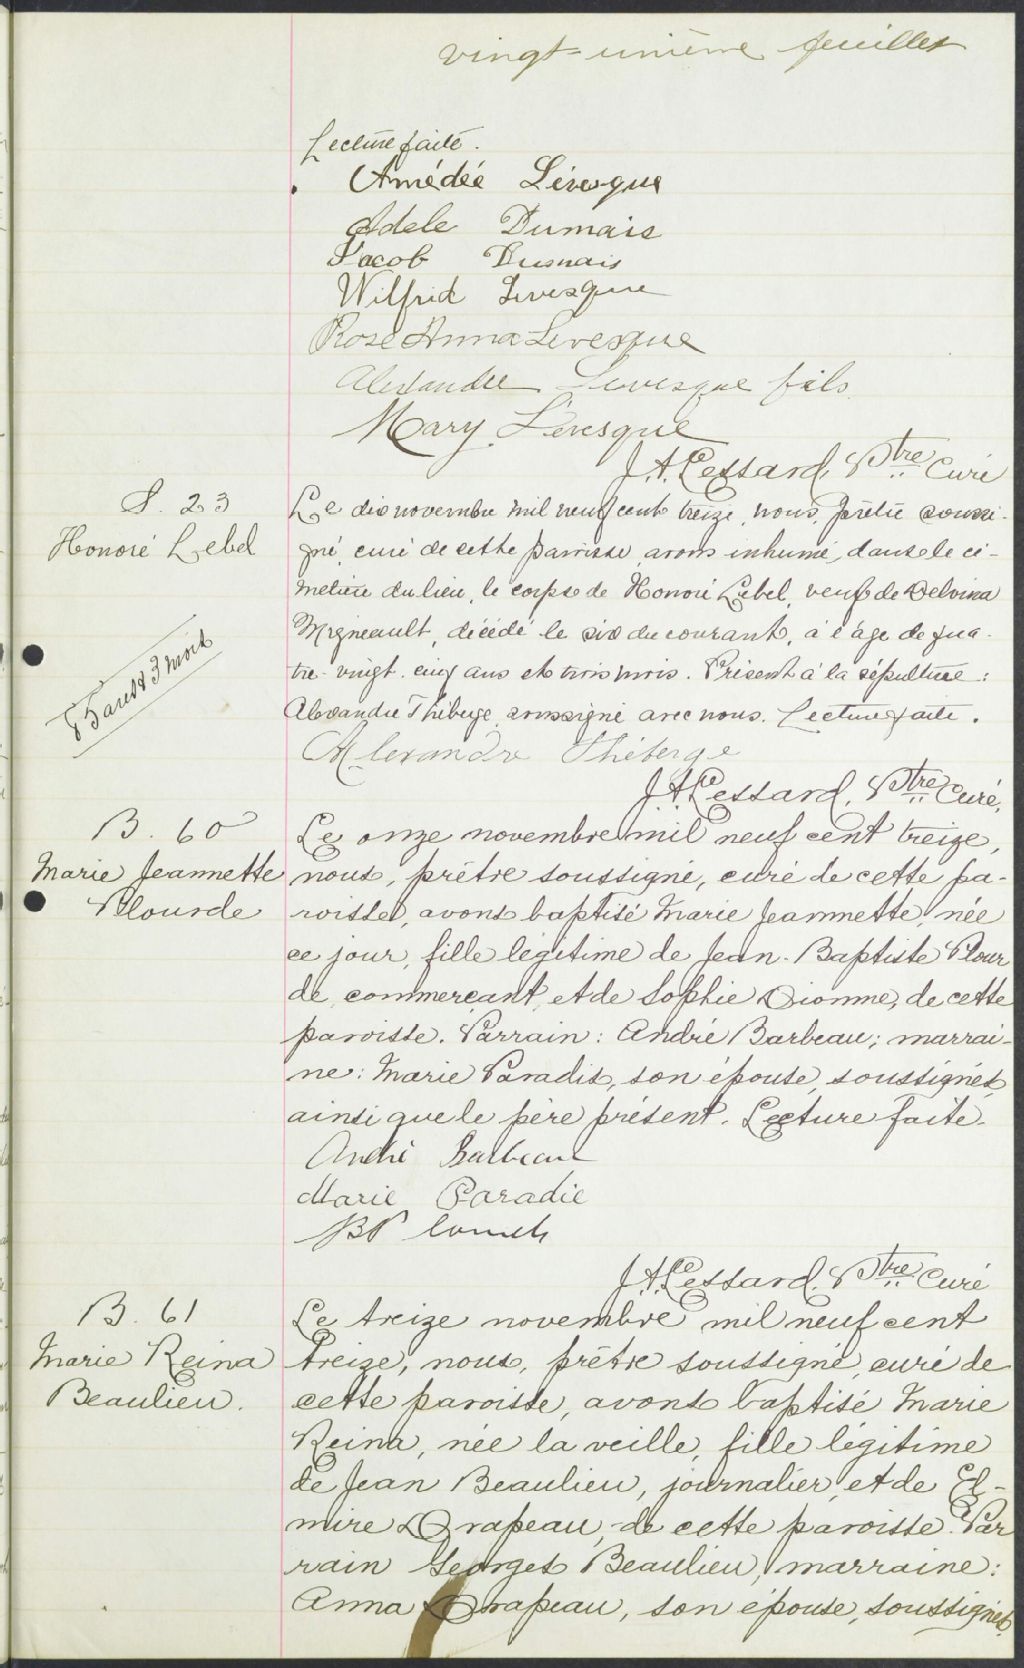 vingt-unième feuillet
Lecture faite.
Amédée Lévesque
Adele Dumais
Jacob Dumais
Wilfrid Levesque
Rose Anna Levesque
Alexandre Levesque fils
Mary Lévesque
J. A. Lessard, Ptre Curé
S. 23
Honoré Lebel
85 ans & 3 mois
Le dix novembre mil neuf cent treize, nous, prêtre soussi-
gné, curé de cette paroisse, avons inhumé, dans le ci-
metière du lieu, le corps de Honoré Lebel, veuf de Delvina
Migneault, décédé le six du courant, à l'âge de qua-
tre-vingt-cinq ans et trois mois. Présent à la sépulture:
Alexandre Thiberge, soussigné avec nous. Lecture faite.
Alexandre Théberge
J. A. Lessard, Ptre Curé,
B. 60
Marie Jeannette
Plourde
Le onze novembre mil neuf cent treize,
nous, prêtre soussigné, curé de cette pa-
roisse, avons baptisé Marie Jeannette, née
ce jour, fille légitime de Jean-Baptiste Plour
de, commerçant, et de Sophie Dionne, de cette
paroisse. Parrain: André Barbeau; marrai-
ne: Marie Paradis, son épouse, soussignés
ainsi que le père présent. Lecture faite.
André Barbeau
Marie Paradie
JBP
J. A. Lessard, Ptre Curé
B. 61
Marie Reina
Beaulieu.
Le treize novembre mil neuf cent
treize, nous, prêtre soussigné, curé de
cette paroisse, avons baptisé Marie
Reina, née la veille, fille légitime
de Jean Beaulieu, journalier, et de El-
mire Drapeau, de cette paroisse. Par
rain Georges Beaulieu, marraine:
Anna Drapeau, son épouse, soussignés,